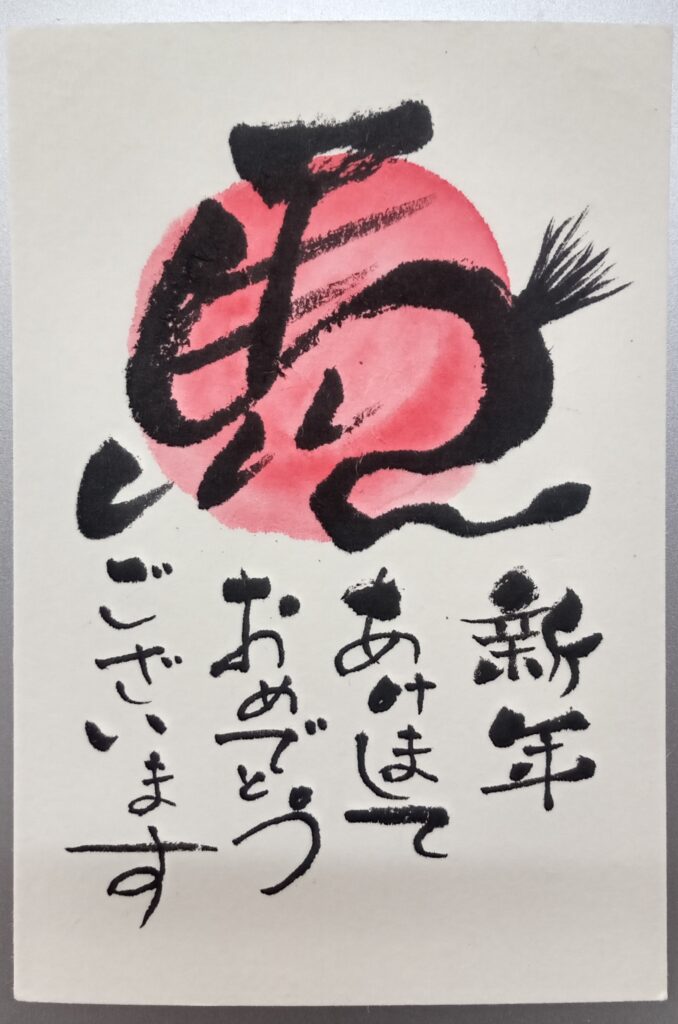 馬
新年
あけまして
おめでとう
ございます